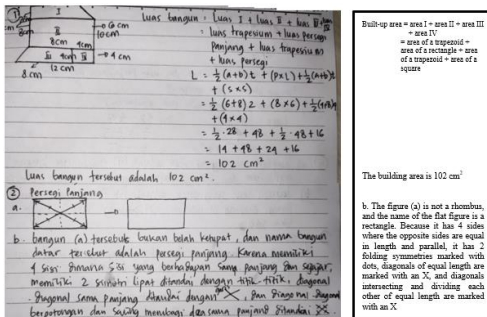 I
6 cm
10 cm
8cm
4cm
4 cm
12 cm
8 cm
Luas bangun = Luas I + luas II + luas III
= luas trapesium + luas persegi
panjang + luas trapesium
+ luas persegi
L = ½ (a+b) t + (p×l) + ½ (a+b) t
+ (s×s)
= ½ (6+8) 2 + (8×6) + ½
+ (4×4)
= ½ · 28 + 48 + ½ · 48 + 16
= 14 + 48 + 24 + 16
= 102 cm²
Luas bangun tersebut adalah 102 cm².
② Persegi Panjang
a.
b. bangun (a) tersebut bukan belah ketupat, dan nama bangun
datar tersebut adalah persegi panjang. Karena memiliki
4 sisi dimana sisi yang berhadapan sama panjang dan sejajar,
memiliki 2 simetri lipat ditandai dengan titik-titik, diagonal
diagonal sama panjang ditandai dengan X, dan diagonal
berpotongan dan saling membagi dua sama panjang ditandai X.
Built-up area = area I + area II + area III
+ area IV
= area of a trapezoid +
area of a rectangle + area
of a trapezoid + area of a
square
The building area is 102 cm²
b. The figure (a) is not a rhombus,
and the name of the flat figure is a
rectangle. Because it has 4 sides
where the opposite sides are equal
in length and parallel, it has 2
folding symmetries marked with
dots, diagonals of equal length are
marked with an X, and diagonals
intersecting and dividing each
other of equal length are marked
with an X